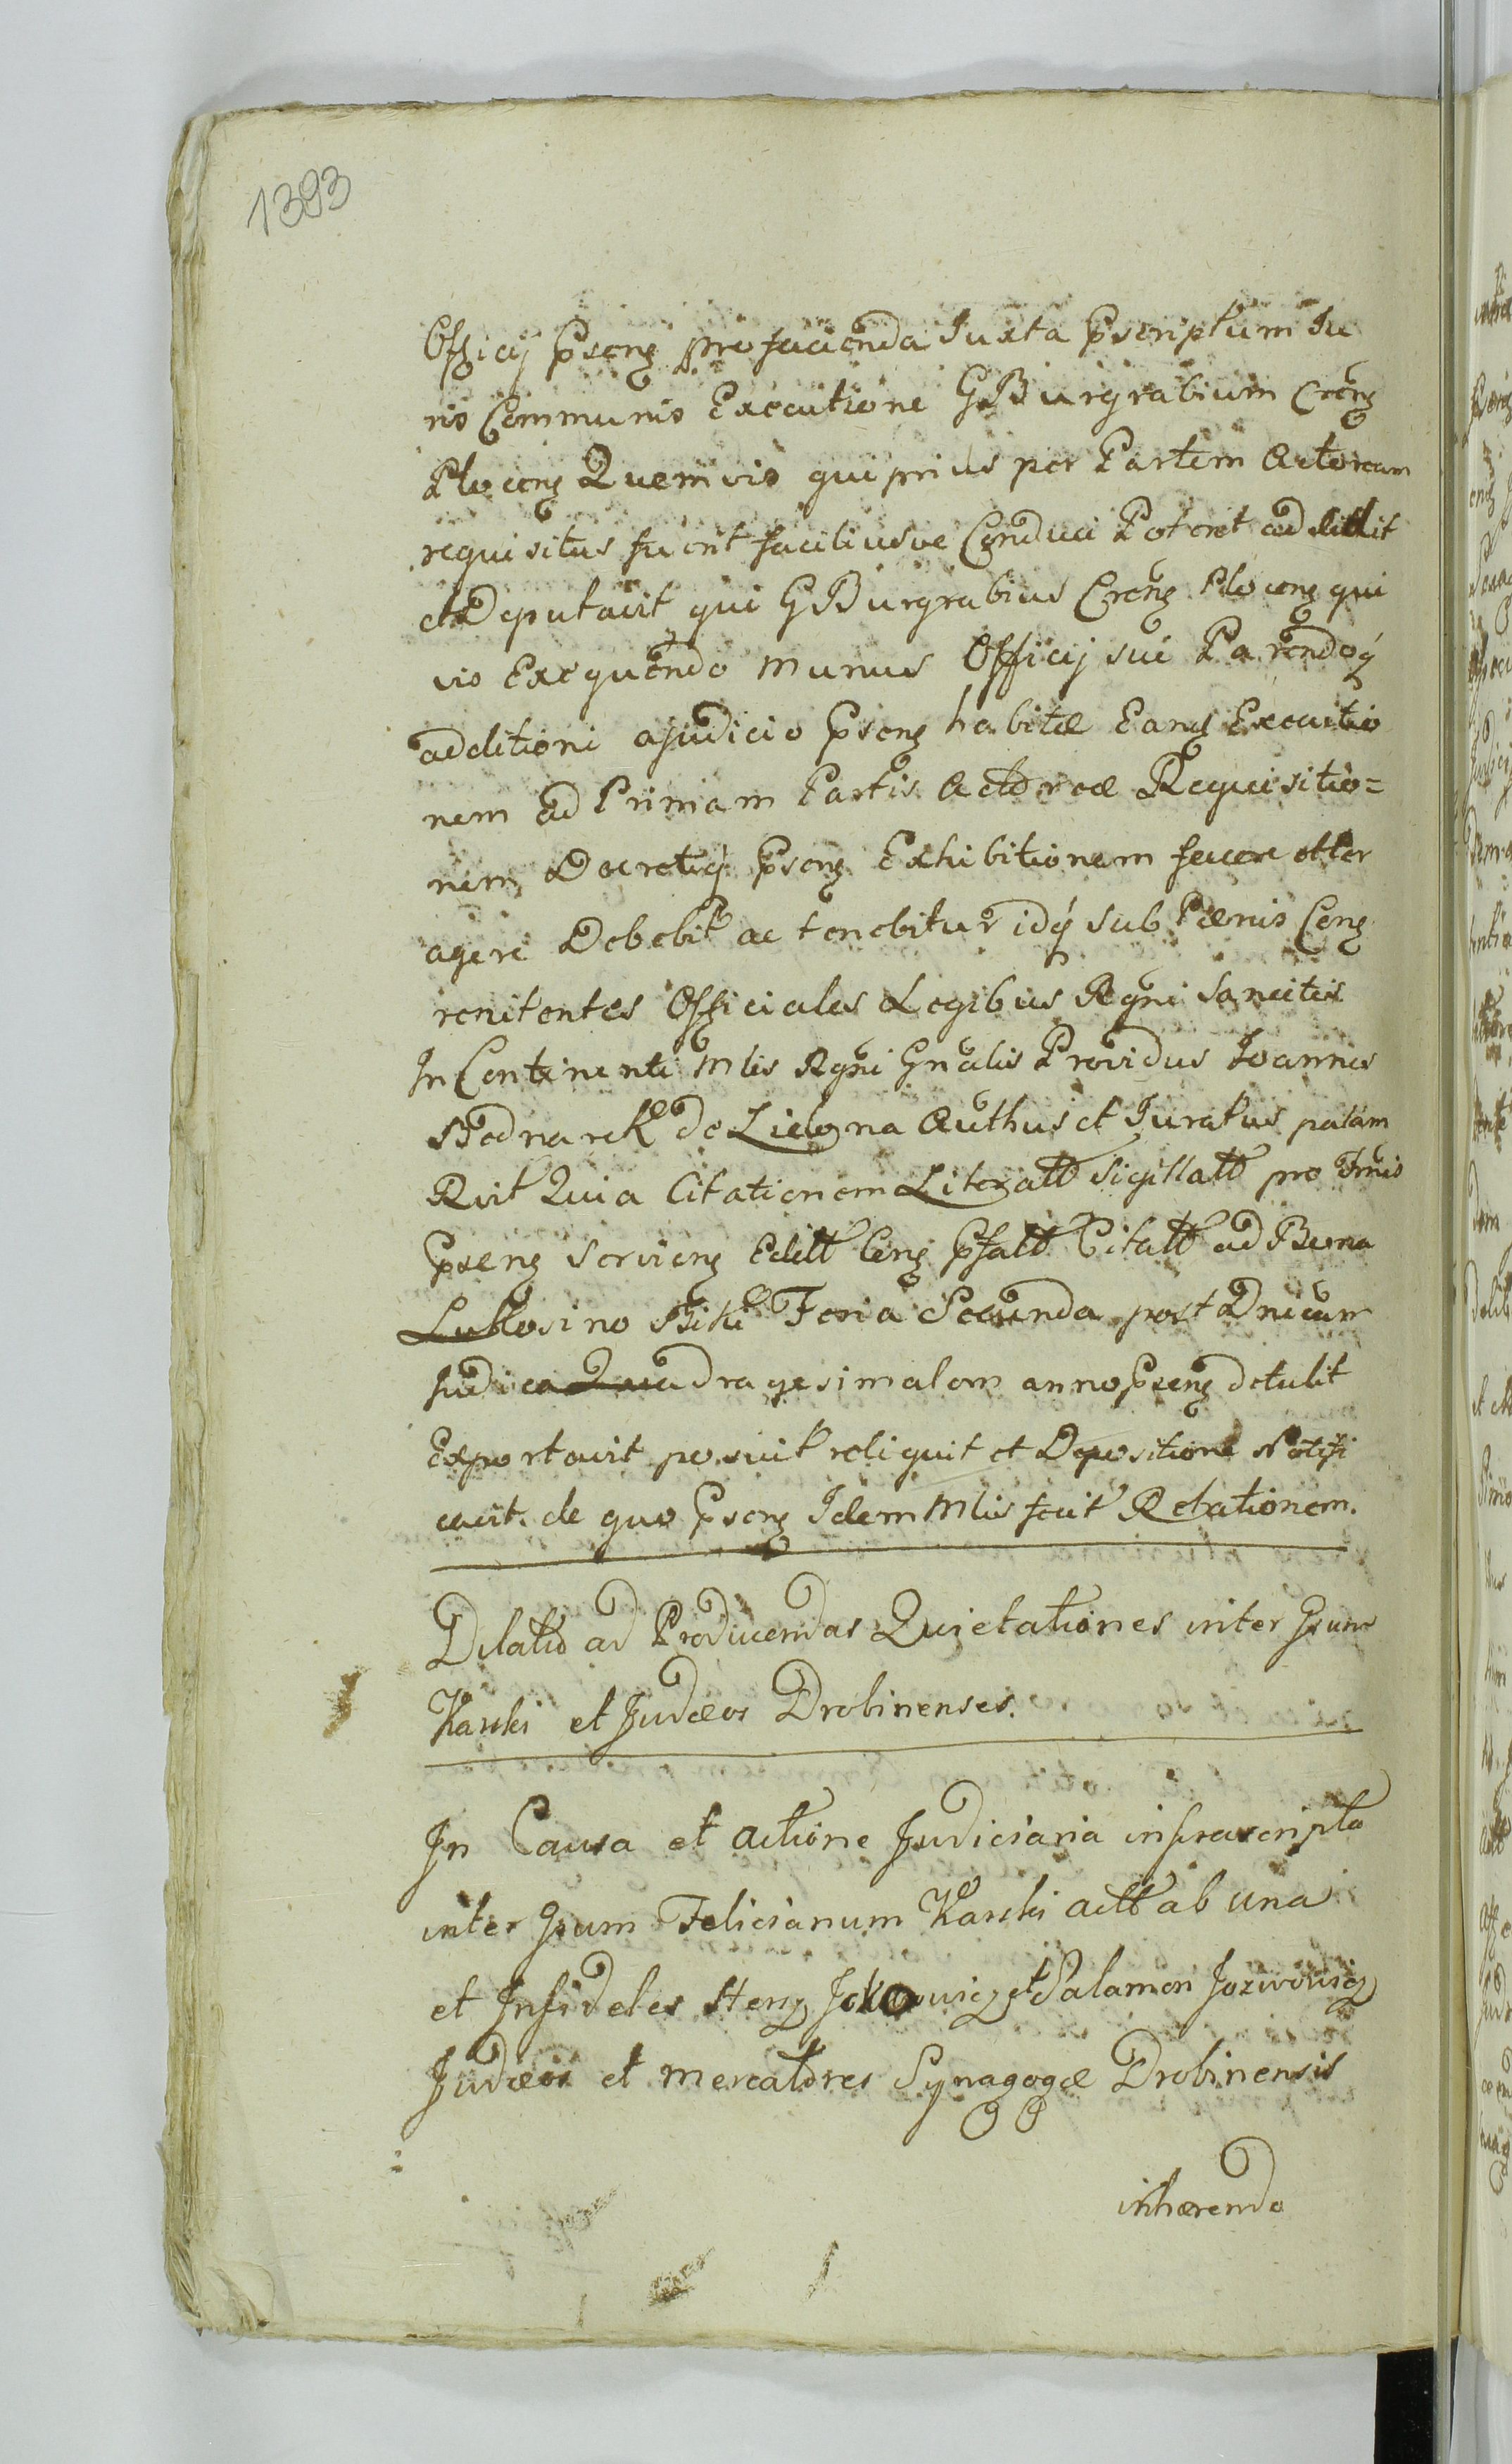 1393
Officij Pseng pro facienda Iuxta Pscriptum Iu
ris Communis Executione GBurgrabium Creng
Ploceng Quemvis qui prius per Partem Actoream
requisitus fuerit faciliusve Conduci Poterit addidit
et Deputavit qui GBurgrabius Creng Ploceng qui
vis Exequendo Munus Officij sui Parendoq́
additioni a Judicio Pseng habitæ Eang Executio
nem ad Primam Partis Actoreæ Requisitio=
nem Decretiq́ Pseng Exhibitionem facere et
agere Debebit ac tenebitur idq́ sub Pœnis Ceng
renitentes Officiales Legibus Regni Sancitis
In Continenti Mlis Regni Gnalis Providus Ioannes
Bednarek de Authus et Iuratus palam
Rvit Quia Citationem Literatt Sigillatt pro Trnis
Pseng Servieng Editt Ceng Pfatt Citatt ad Bona
Feria Secunda post Dnicam
Judica Quadragesimalem anno Pseng detulit
Exportavit posuit reliquit et Depositione Notifi
cavit. de quo Pseng Idem Mlis fecit Relationem.
Dilatio ad Producendas Quietationes inter Gsum
Karski et Judæos Drobinenses.
In Causa et actione Judiciaria infrascripta
inter Gsum Felicianum Karski actt ab una
et Infideles Herz et Salamon Jozwowicz
Judæos et mercatores Synagogæ Drobinensis
inhærendo